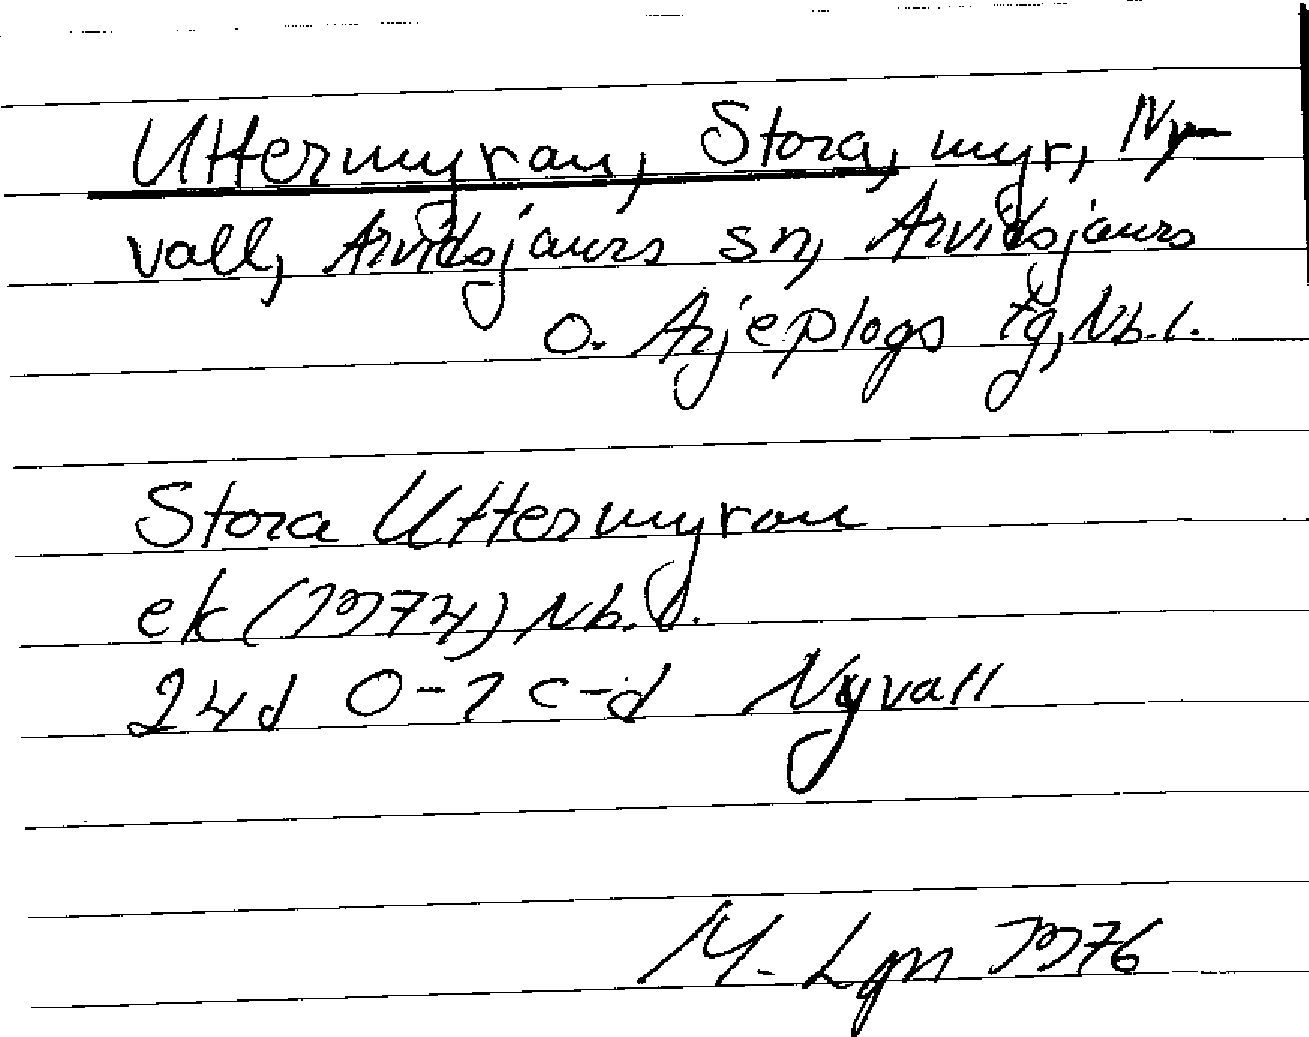 Uttermyran, Stora, myr, Ny-
vall, Arvidsjaurs sn, Arvidsjaurs
o. Arjeplogs tg, Nb.l.
Stora Uttermyran
ek (1974) Nb.l.
24d 0-1 c-d Nyvall
M. Lgn 1976